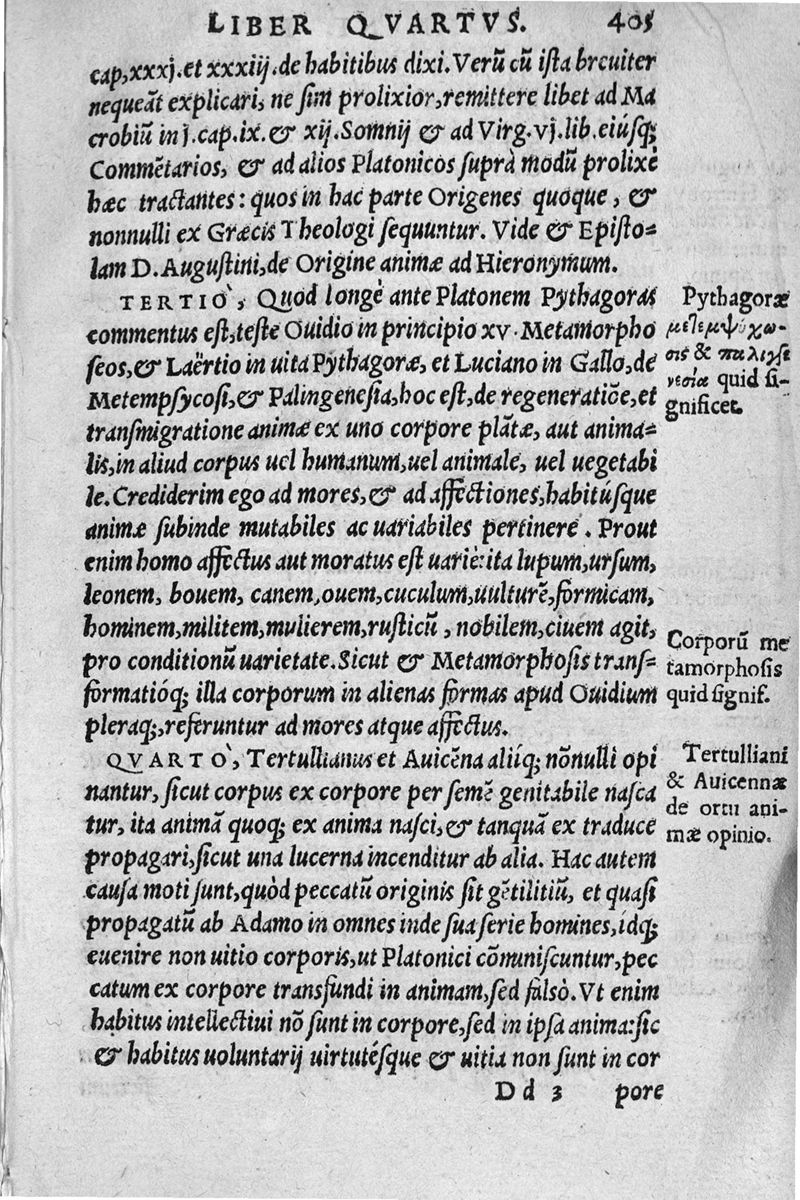 LIBER QVARTVS. 405
cap,xxxj.et xxxiij.de habitibus dixi.Verũ cũ iſta breuiter
nequeãt explicari, ne ſim prolixior,remittere libet ad Ma
crobiũ in j.cap.ix.& xij.Somnij & ad Virg.vj.lib.eiúſq;
Commẽtarios, & ad alios Platonicos ſuprà modũ prolixè
hæc tractantes: quos in hac parte Origenes quoque, &
nonnulli ex Græcis Theologi ſequuntur. Vide & Epiſto=
lam D.Auguſtini,de Origine animæ ad Hieronymum.
TERTIO`, Quod longè ante Platonem Pythagoras
commentus eſt,teſte Ouidio in principio xv.Metamorpho
ſeos,& Laërtio in uita Pythagoræ, et Luciano in Gallo,de
Metempſycoſi,& Palingeneſia,hoc eſt,de regeneratiõe,et
tranſmigratione animæ ex uno corpore plãtæ, aut anima=
lis,in aliud corpus uel humanum,uel animale, uel uegetabi
le.Crediderim ego ad mores,& ad affectiones,habitúſque
animæ ſubinde mutabiles ac uariabiles pertinere. Prout
enim homo affectus aut moratus eſt uariè:ita lupum,urſum,
leonem, bouem, canem,ouem,cuculum,uulturẽ,formicam,
hominem,militem,mulierem,ruſticũ, nobilem,ciuem agit,
pro conditionũ uarietate.Sicut & Metamorphoſis tranſ=
formatióq; illa corporum in alienas formas apud Ouidium
pleraq;,referuntur ad mores atque affectus.
QVARTO`, Tertullianus et Auicẽna aliíq; nõnulli opi
nantur, ſicut corpus ex corpore per ſemẽ genitabile naſca
tur, ita animã quoq; ex anima naſci,& tanquã ex traduce
propagari,ſicut una lucerna incenditur ab alia. Hac autem
cauſa moti ſunt,quòd peccatũ originis ſit gẽtilitiũ, et quaſi
propagatũ ab Adamo in omnes inde ſua ſerie homines,idq;
euenire non uitio corporis,ut Platonici cõminiſcuntur,pec
catum ex corpore transfundi in animam,ſed falsò.Vt enim
habitus intellectiui nõ ſunt in corpore,ſed in ipſa anima:ſic
& habitus uoluntarij uirtutéſque & uitia non ſunt in cor
Dd 3 pore
Pythagoræ
μετεμψύχω-
σις & παλιγγε
νεσία quid ſi-
gnificet.
Corporũ me
tamorphoſis
quid ſignif.
Tertulliani
& Auicennæ
de ortu ani-
mæ opinio.